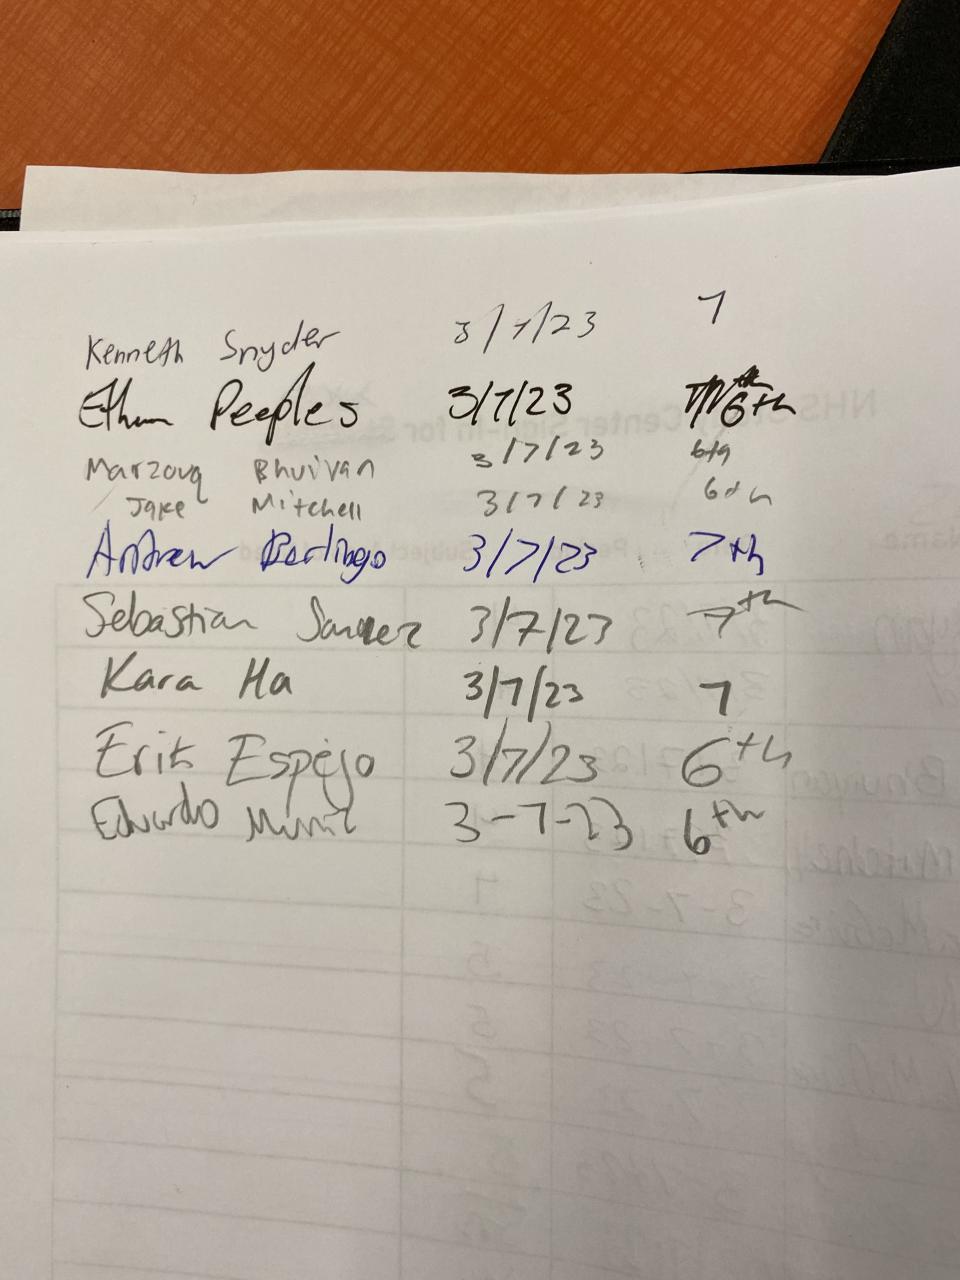 Kenneth Snyder 3/7/23 7
Ethan Peeples 3/7/23 6th
Marzouq Bhuiyan 3/7/23 6th
Jake Mitchell 3/7/23 6th
Andrew Berlingo 3/7/23 7th
Sebastian 3/7/23 7th
Kara Ha 3/7/23 7
Erik Espejo 3/7/23 6th
Eduardo Muniz 3-7-23 6th